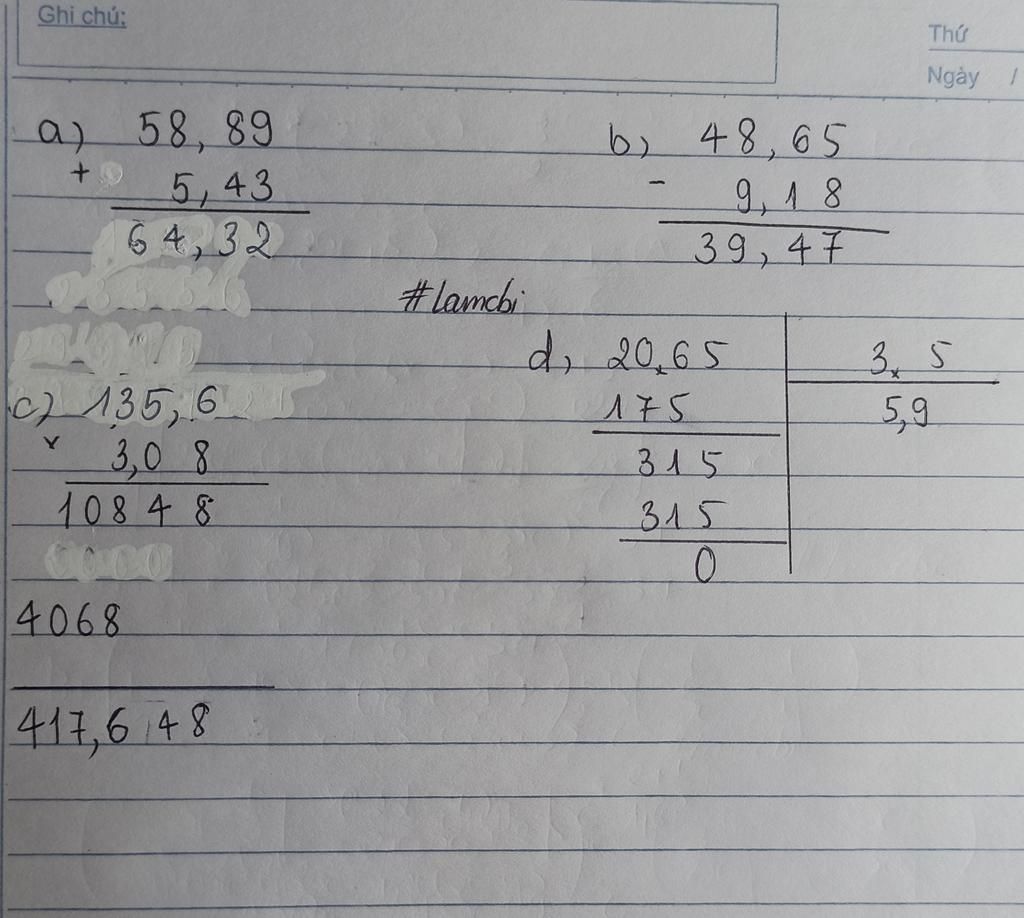 Ghi chú:
Thứ
Ngày /
a) 58,89
+ 5,43
64,32
b) 48,65
- 9,18
39,47
#lamcbi
c) 135,6
x 3,08
10848
4068
417,648
d) 20,65 3,5
175 5,9
315
315
0